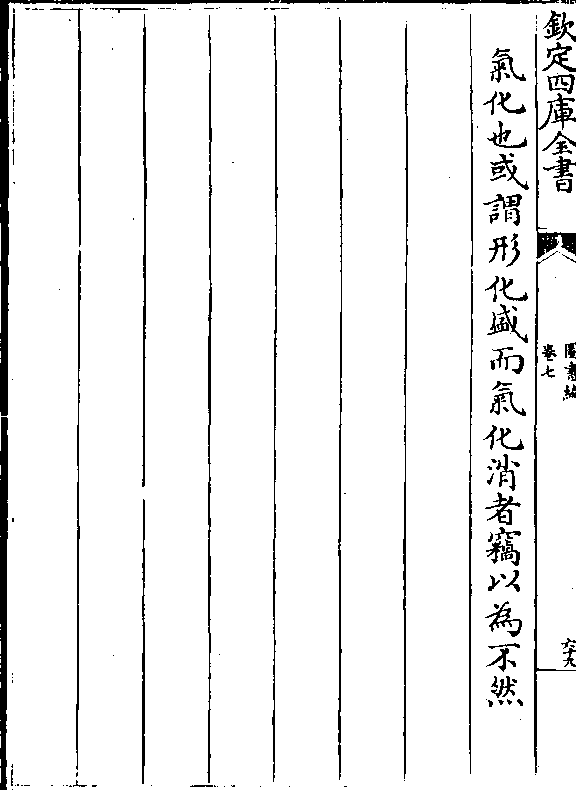 欽定四庫全書
圖書編
卷七
六十九
氣化也或謂形化盛而氣化消者竊以為不然